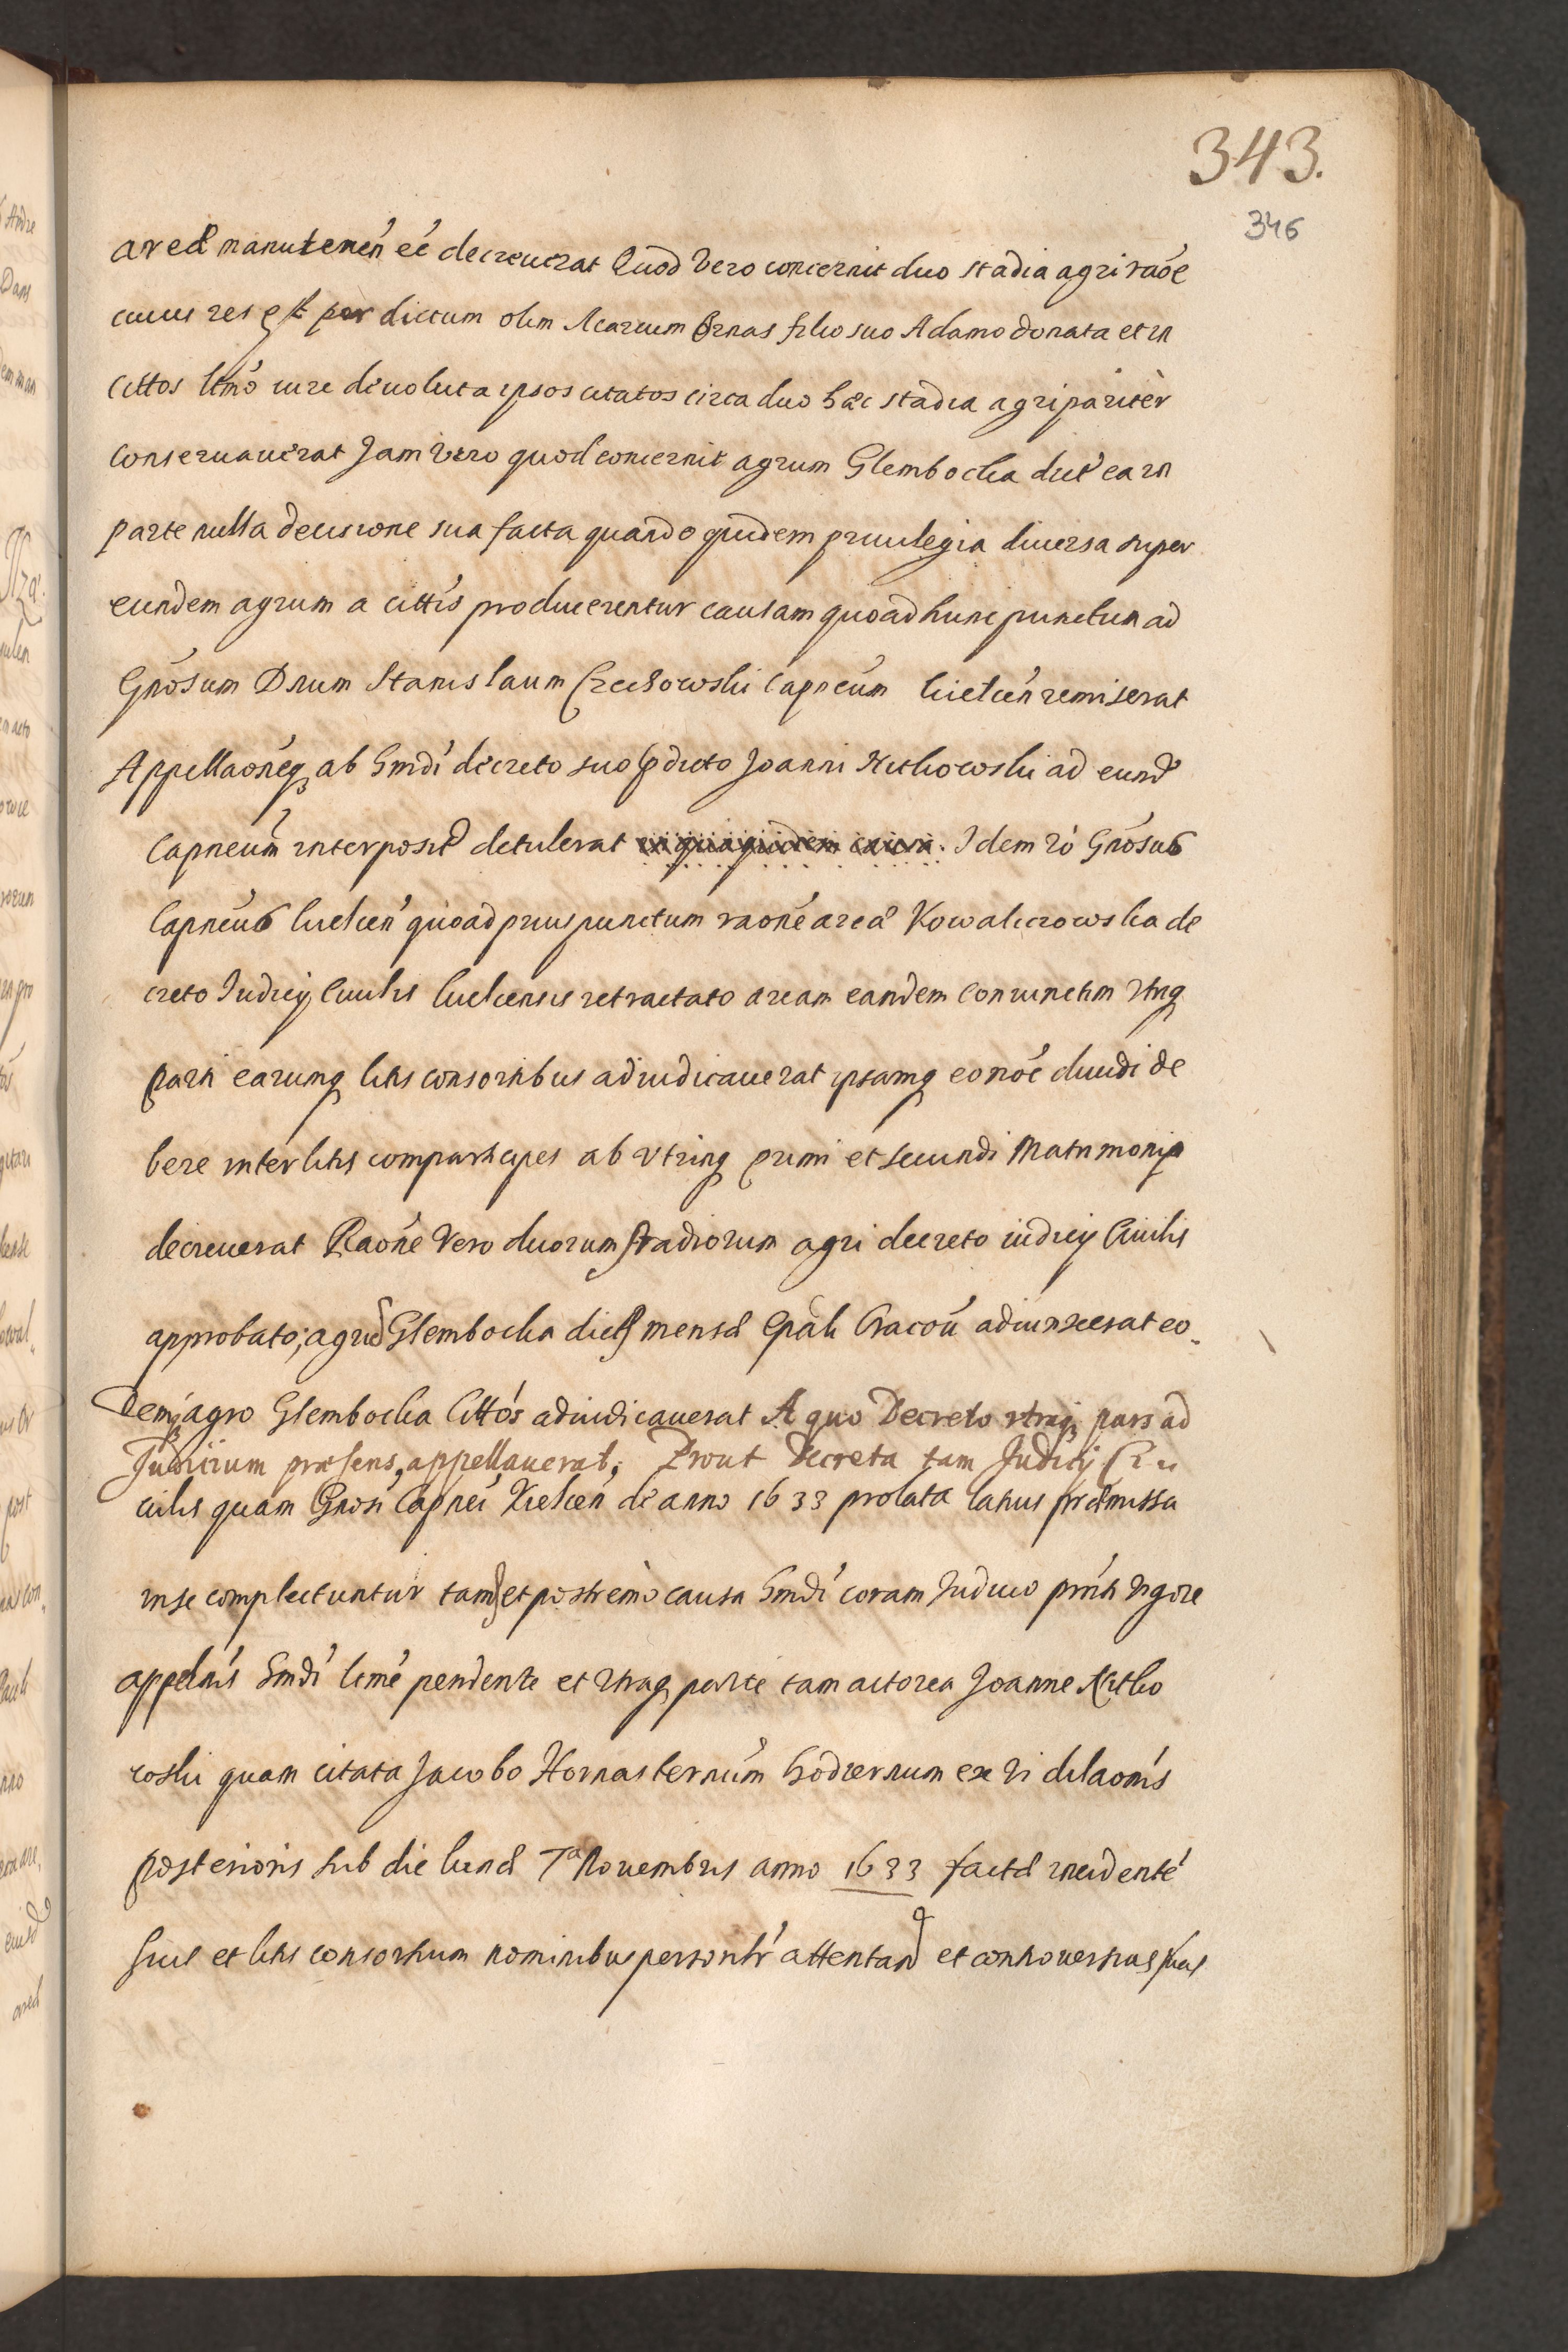 343.
346
areae manutenen̄ eē decreuerat Quod Vero concernit duo stadia agri raōe
cuius res est per dictum olim Marcum Ornas filio suo Adamo donata et in
Cittos ltmo iure deuoluta ipsos citatos circa duo haec stadia agri pariter
conseruauerat Jam Vero quod concernit agrum Glembocka dict' ea in
parte nulla decisione sua facta quando quidem priuilegia diuersa super
eundem agrum a cittis producerentur causam quoad hunc punctum ad
Gnōsum Dnum Stanislaum Czechowski Capneum Kielcen̄ remiserat
Appellaōneq₃ ab hmdi decreto suo pdicto Joanni Mitkowski ad eund
Capneum interposit detulerat in qua quidem causa. Idem v̄o Gnōsus
Capneus Kielcen̄ quoad prius punctum raōne areae Kowalczowska de
creto Iudicij Ciuilis Kielcensis retractato aream eandem coniunctim vtriq
parti earumq litis consortibus adiudicauerat ipsamq eo nōe diuidi de
bere inter litis comparticipes ab vtrinq primi et secundi Matrimonij
decreuerat Raōne Vero duorum stadiorum agri decreto iudicij Ciuilis
approbato; agru Glembocka dict mensae Epali Cracou adiunxerat eo
demq₃ agro Glembocka Cittos adiudicauerat A quo Decreto vtraq₃ pars ad
Judicium praesens appellauerat; Prout Decreta tam Judicij Ci
uilis quam Gnosi Capnei Kielcen̄ de anno 1633 prolata latius praemissa
in se complectuntur tand et postremo causa hmdi coram Iudicio pnti vigore
appelnis hmdi ltme pendente et vtraq parte tam actorea Joanne Mitko
wski quam citata Jacobo Hornas ternum hodiernum ex vi dilaonis
posterioris sub die lunae 7a Nouembris anno 1633 factae incidente
suis et litis consortium nominibus personlr attentan et controuersias suas